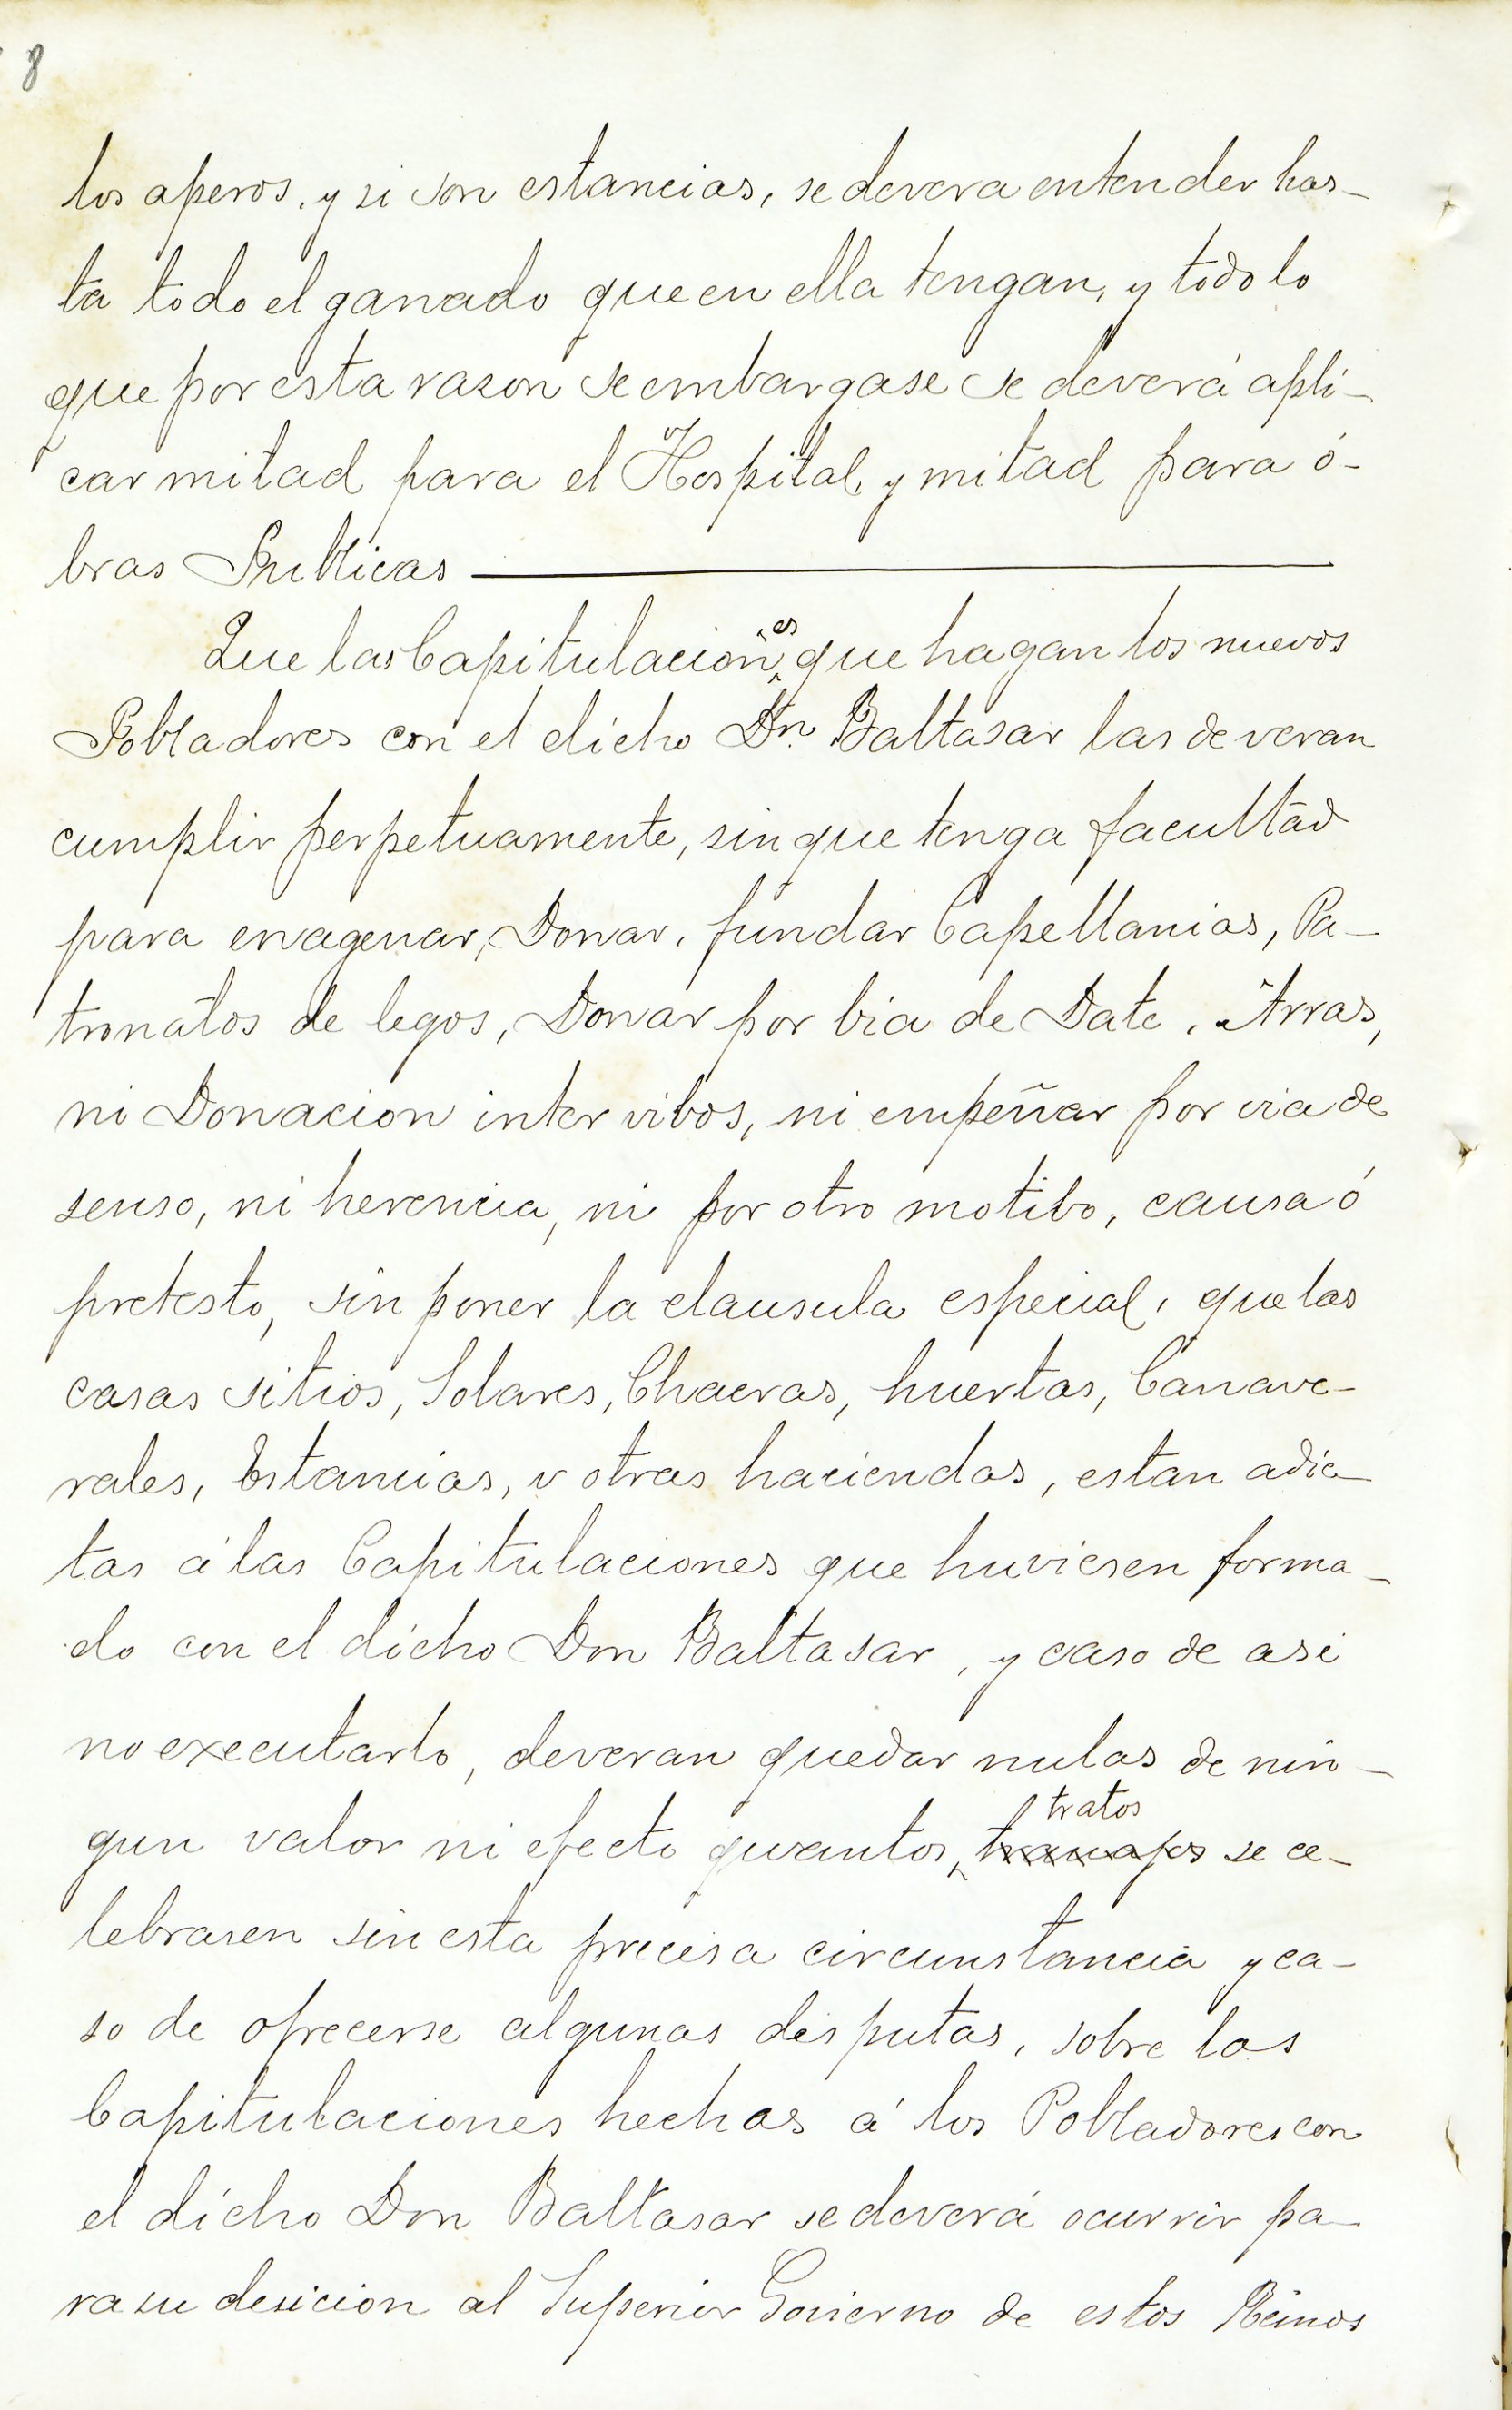 8
los aperos, y si son estancias, se devera entender has-
ta todo el ganado que en ella tengan, y todo lo
que por esta razon se embargase se deverá apli-
car mitad para el Hospital, y mitad para ó-
bras Publicas
Que las Capitulaciones que hagan los nuevos
Pobladores con el dicho Dn. Baltasar las deveran
cumplir perpetuamente, sin que tenga facultad
para enagenar, Donar, fundar Capellanias, Pa-
tronatos de legos, Donar por bia de Date, Arras,
ni Donacion inter vibos, ni empeñar por via de
senso, ni herencia, ni por otro motibo, causa ó
pretesto, sin poner la clausula especial, que las
casas sitios, Solares, Chacras, huertas, Canave-
rales, Estancias, v otras haciendas, estan adic-
tas á las Capitulaciones que huviesen forma-
do con el dicho Don Baltasar, y caso de asi
no executarlo, deveran quedar nulas de nin-
gun valor ni efecto quantos tratos se ce-
lebrasen sin esta precisa circunstancia y ca-
so de ofrecerse algunas disputas, sobre las
Capitulaciones hechas á los Pobladores con
el dicho Don Baltasar se deverá ocurrir pa-
ra su desicion al Superior Govierno de estos Reinos